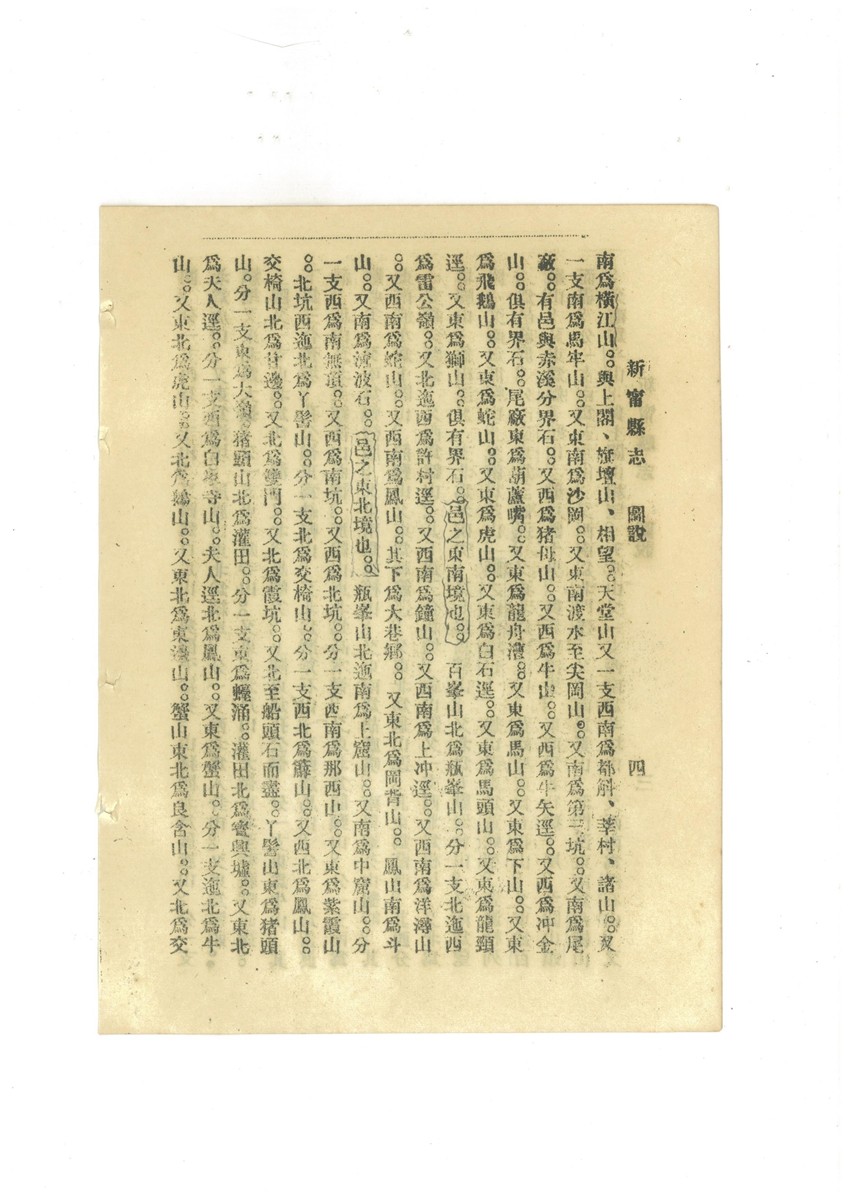 新甯縣志　圖說　四
南爲橫江山。。與上閣、嶺壇山、相望。。天堂山又一支西南爲都斛、莘村、諸山。。又
一支南爲馬牢山。。又東南爲沙岡。。又東南渡水至尖岡山。。又南爲第三坑。。又南爲尾
廠。。有邑與赤溪分界石。。又西爲猪母山。。又西爲牛山。。又西爲牛矢逕。。又西爲冲金
山。。俱有界石。。尾廠東爲葫蘆嘴。。又東爲龍舟灣。。又東爲馬山。。又東爲下山。。又東
爲飛鵝山。。又東爲蛇山。。又東爲虎山。。又東爲白石逕。。又東爲馬頭山。。又東爲龍頸
逕。。又東爲獅山。。俱有界石。。邑之東南境也。。　百峯山北爲瓶峯山。。分一支北迤西
爲雷公嶺。。又北迤西爲許村逕。。又西南爲鐘山。。又西南爲上冲逕。。又西南爲洋潯山
。。又西南爲蛇山。。又西南爲鳳山。。其下爲大巷鄉。。又東北爲岡背山。。鳳山南爲斗
山。。又南爲浪波石。。邑之東北境也。。　瓶峯山北迤南爲上窟山。。又南爲中窟山。。分
一支西爲南無頂。。又西爲南坑。。又西爲北坑。。分一支西南爲那西山。。又東爲紫霞山
。。北坑西迤北爲丫髻山。。分一支北爲交椅山。。分一支西北爲簰山。。又西北爲鳳山。。
交椅山北爲甘邊。。又北爲雙門。。又北爲霞坑。。又北至船頭石而盡。。丫髻山東爲猪頭
山。。分一支東爲大嶺。。猪頭山北爲灌田。。分一支東爲蟶涌。。灌田北爲寶興墟。。又東北
爲夫人逕。。分一支西爲白虎寺山。。夫人逕北爲鳳山。。又東爲蟹山。。分一支迤北爲牛
山。。又東北爲虎山。。又北爲鷄山。。又東北爲東濠山。。蟹山東北爲良含山。。又北爲交